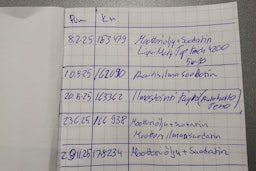 Pvm Km
8.2.25 153479 Moottoriöljy + Suodatin
Liqui Moly Top Tech 4200
5w-30
10.5.25 162090 Raitisilmasuodatin
20.5.25 163362 Ilmastointi
23.6.25 166 938 Moottoriöljy + Suodatin
Moottori ilmansuodatin
2.9.11.25 178234 Moottoriöljy + Suodatin